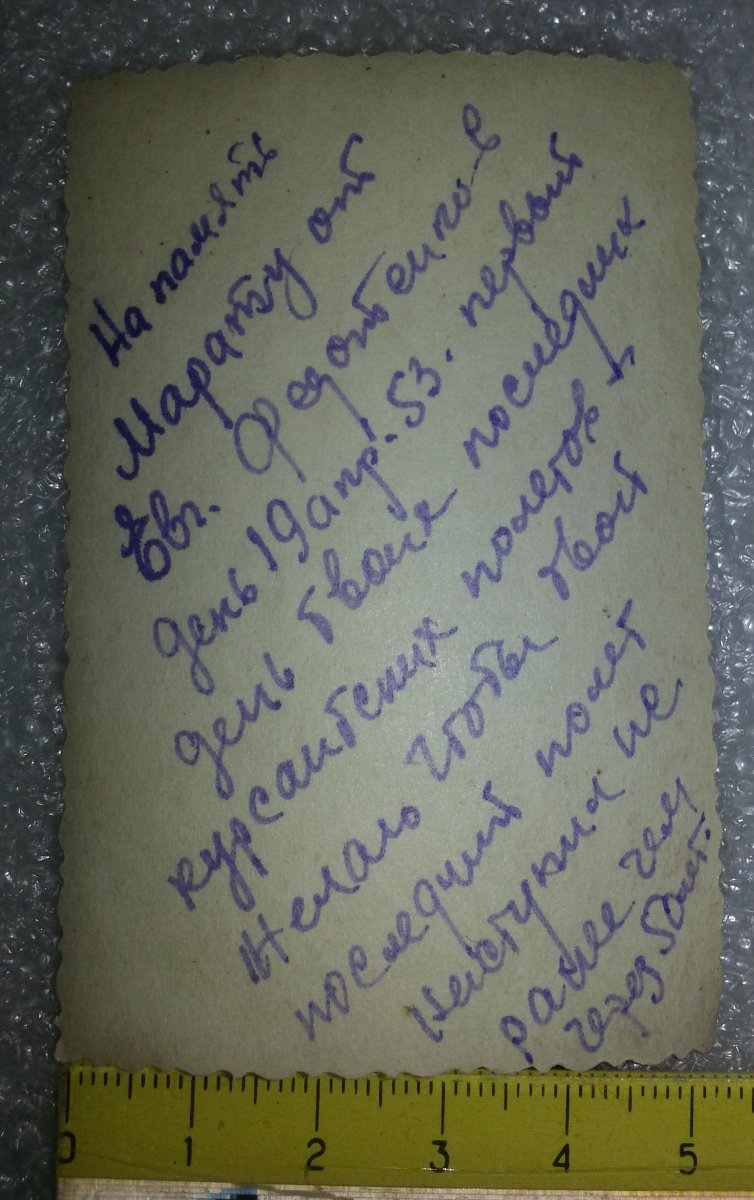 На память
Марату от
Евг. Федотенков
день 19 апр. 53. первый
день твоих последних
курсантских полетов
Желаю чтобы твой
последний полет
наступил не
ранее чем
через 50 лет.
0 1 2 3 4 5